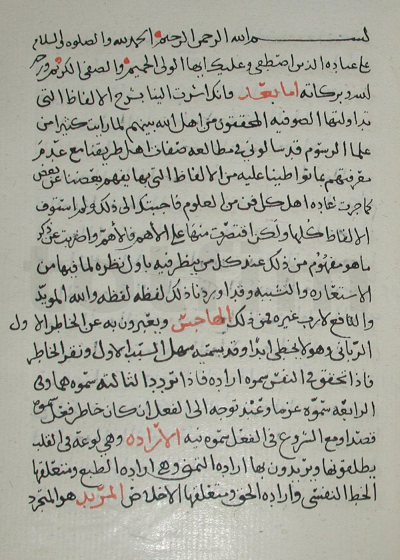 بسم الله الرحمن الرحيم الحمد لله والصلوه والسلام
على عباده الذين اصطفى وعليك ايها الولى الحميم والصفى الكريم ورحمة
الله وبركاته اما بعد فانك اشرت الينا بشرح الالفاظ التى
تداولتها الصوفيه المحققون من اهل الله بينهم لما رايت كثيرا من
علما الرسوم قد سالونى فى مطالعه مصنفاتنا ومصنفات اهل طريقنا مع عدم
معرفتهم بما تواطينا عليه من الالفاظ التى بها يفهم بعضنا عن بعض
كما جرت عاده اهل كل فن من العلوم فاجبتك الى ذلك ولم استوف
الالفاظ كلها ولكن اقتصرت منها على الاهم فالاهم واضربت عن ذكر
ما هو مفهوم من ذلك عند كل من ينظر فيه باول نظره لما فيها من
الاستعاره والتشبيه وقد اوردنا ذلك لفظه لفظه والله المويد
والنافع لا رب غيره فمن ذلك الهاجس ويعبرون به عن الخاطر الاول
الربانى وهو لا يخطى ابدا وقد يسميه سهل السبب الاول ونقر الخاطر
فاذا تحقق فى النفس سموه اراده فاذا تردد الثالثه سموه هما وفى
الرابعه سموه عزما وعند توجه الى الفعل ان كان خاطر فعل سموه
قصدا ومع الشروع فى الفعل سموه نيه الاراده وهى لوعة فى القلب
يطلقونها ويريدون بها اراده التمنى وهى اراده الطبع ومتعلقها
الحظ النفسى واراده الحق ومتعلقها الاخلاص المريد هو المتجرد